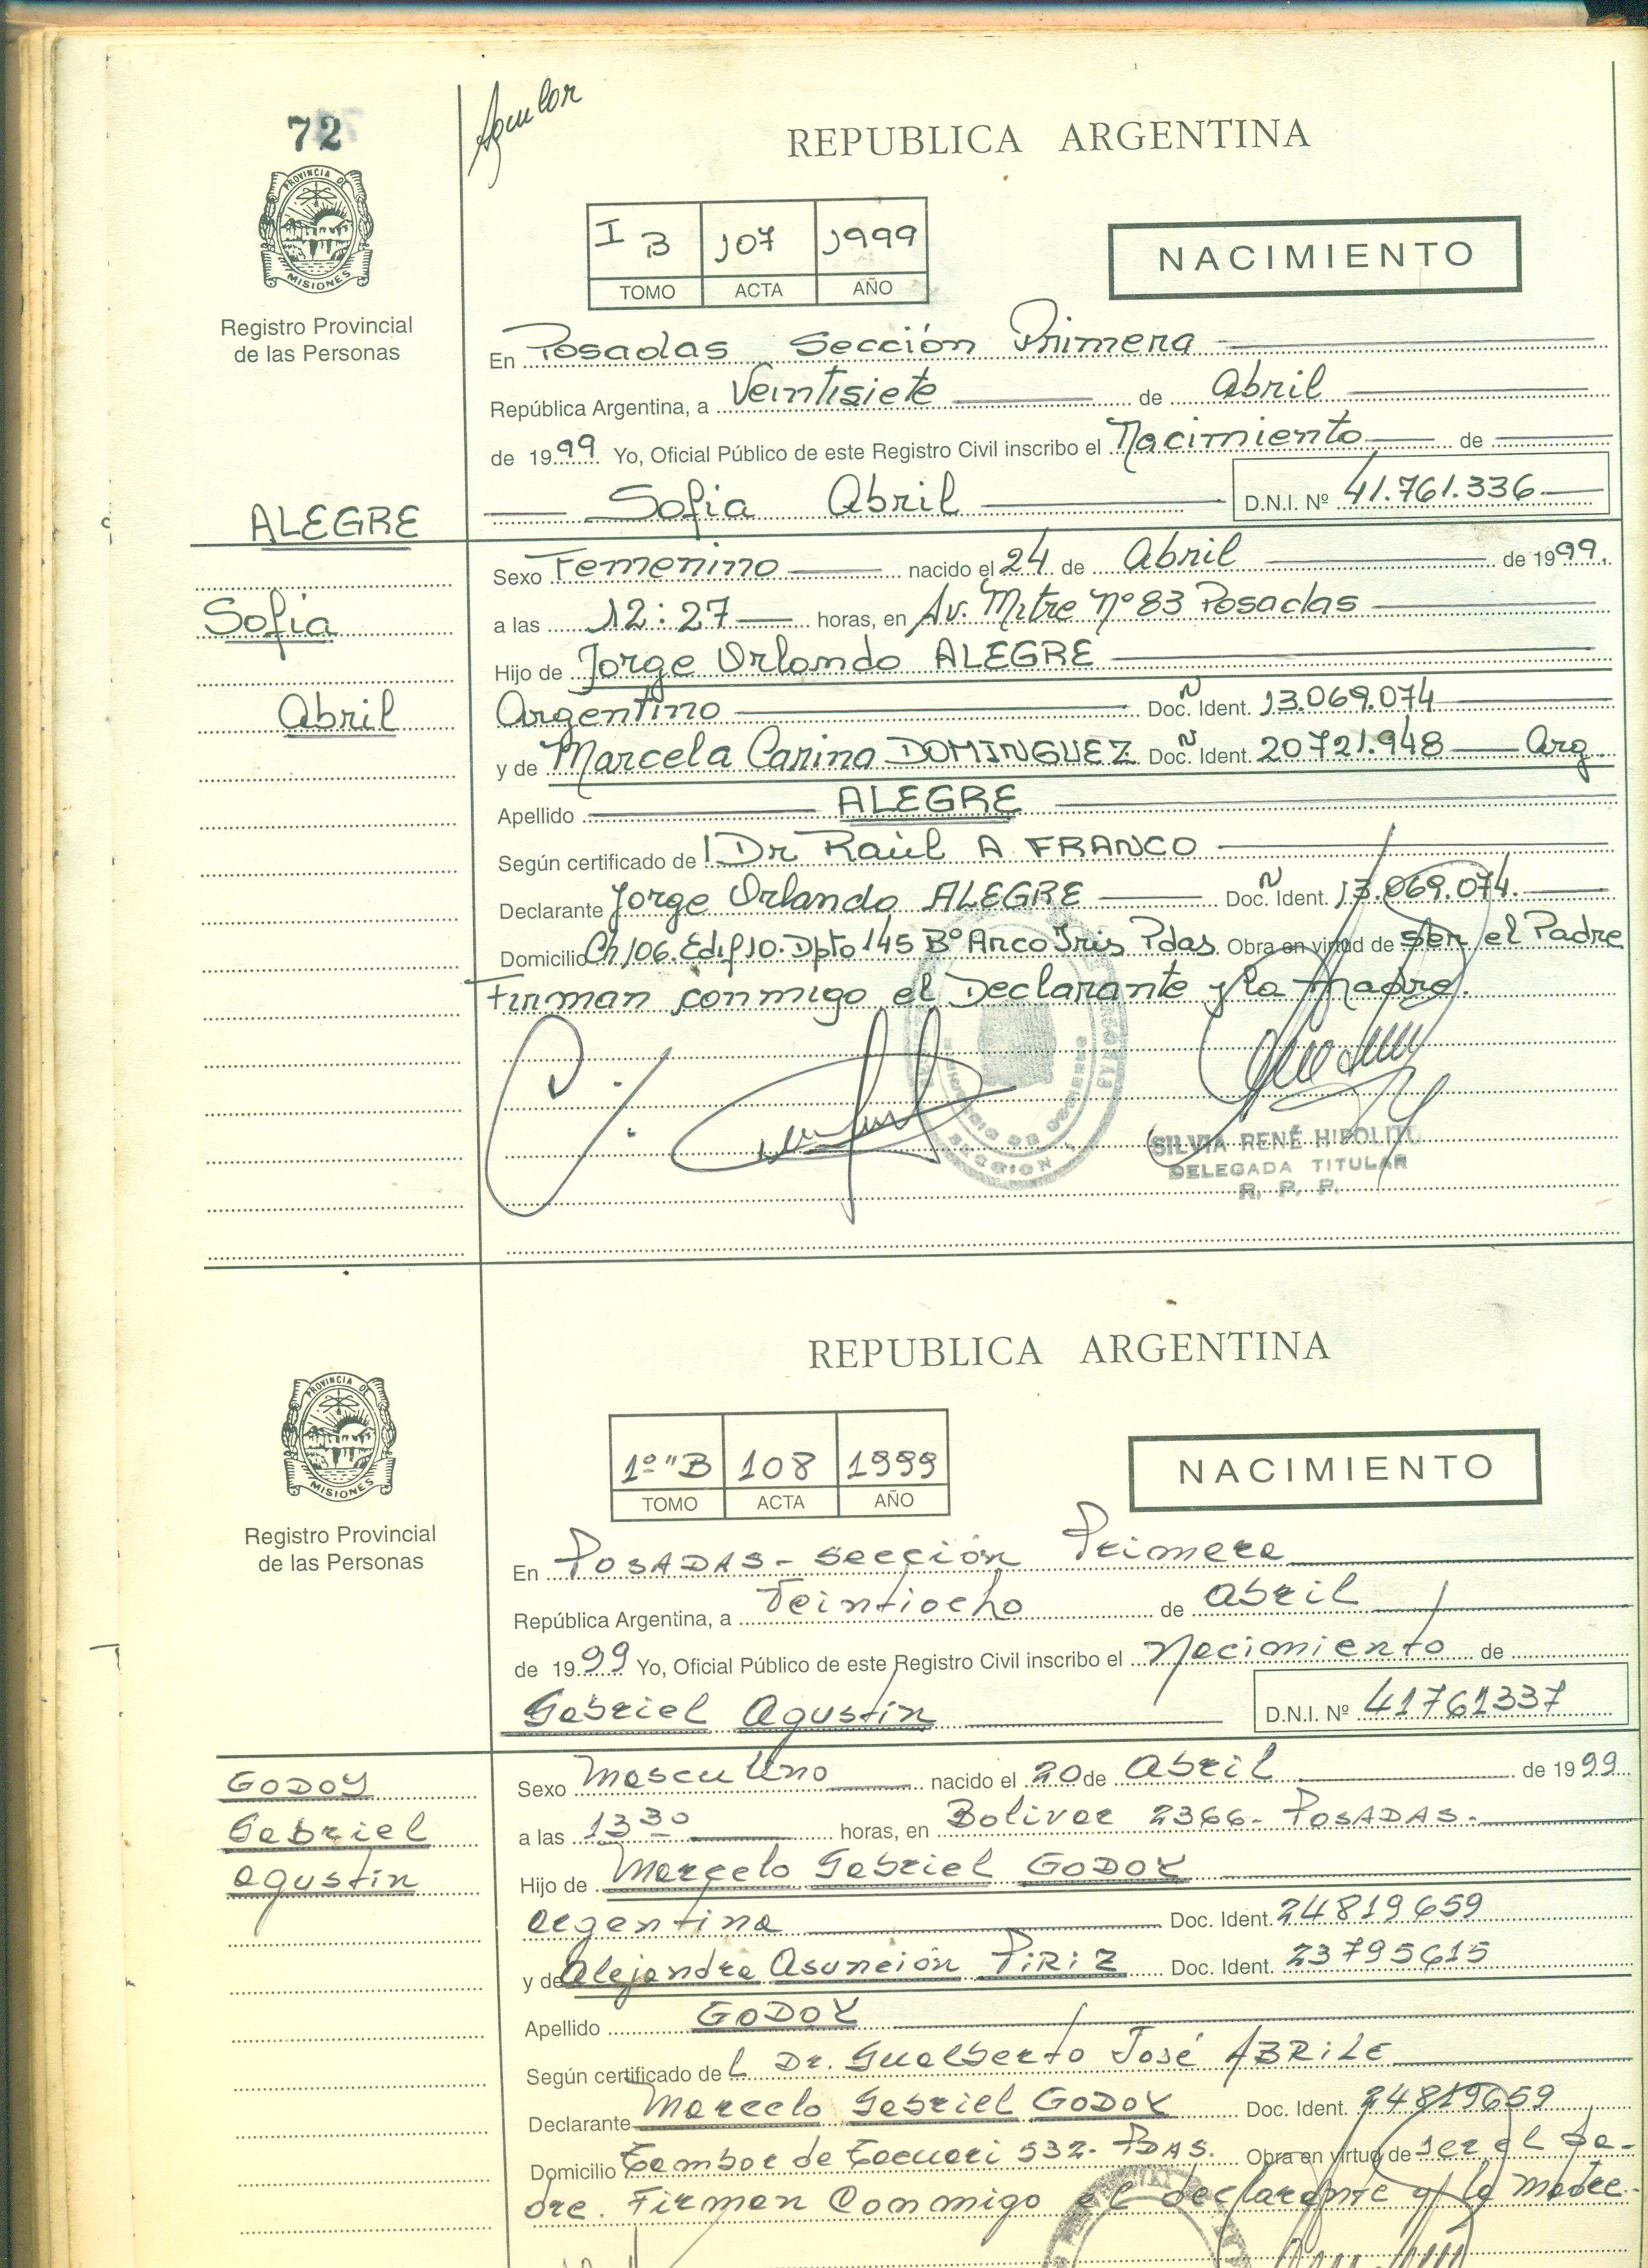 72
Aguilar
REPUBLICA ARGENTINA
PROVINCIA DE
MISIONES
I B 107 1999
TOMO ACTA AÑO
NACIMIENTO
Registro Provincial
de las Personas
En Posadas Sección Primera
República Argentina, a Veintisiete de Abril
de 1999 Yo, Oficial Público de este Registro Civil inscribo el Nacimiento de
Sofia Abril D.N.I. Nº 41.761.336
ALEGRE
Sofia
Abril
Sexo Femenino nacido el 24 de Abril de 1999.
a las 12:27 horas, en Av. Mitre Nº 83 Posadas
Hijo de Jorge Orlando ALEGRE
Argentino Doc. Ident. 13.069.074
y de Marcela Carina DOMINGUEZ Doc. Ident. 20721.948 Arg.
Apellido ALEGRE
Según certificado de l Dr Raúl A FRANCO
Declarante Jorge Orlando ALEGRE Doc. Ident. 13.069.074.
Domicilio Ch 106. Edif 10. Dpto 145 Bº Arco Iris Pdas. Obra en virtud de ser el Padre
Firman conmigo el Declarante y la Madre.
SECCION
SILVIA RENÉ HIPOLITO
DELEGADA TITULAR
R. P. P.
REPUBLICA ARGENTINA
PROVINCIA DE
MISIONES
1º "B 108 1999
TOMO ACTA AÑO
NACIMIENTO
Registro Provincial
de las Personas
En POSADAS - Sección Primera
República Argentina, a Veintiocho de Abril
de 1999 Yo, Oficial Público de este Registro Civil inscribo el Nacimiento de
Gabriel Agustín D.N.I. Nº 41761337
GODOY
Gabriel
Agustín
Sexo Masculino nacido el 20 de Abril de 1999
a las 13 30 horas, en Bolivar 2366 - POSADAS.
Hijo de Marcelo Gabriel GODOY
Argentina Doc. Ident. 24819659
y de Alejandra Asunción PiRiZ Doc. Ident. 23795615
Apellido GODOY
Según certificado de l Dr. Gualberto José ABRiLE
Declarante Marcelo Gabriel GODOY Doc. Ident. 24819659
Domicilio Tambor de Tacuari 532 - PDAS. Obra en virtud de ser el Pa-
dre. Firman Conmigo el declarante y la madre.